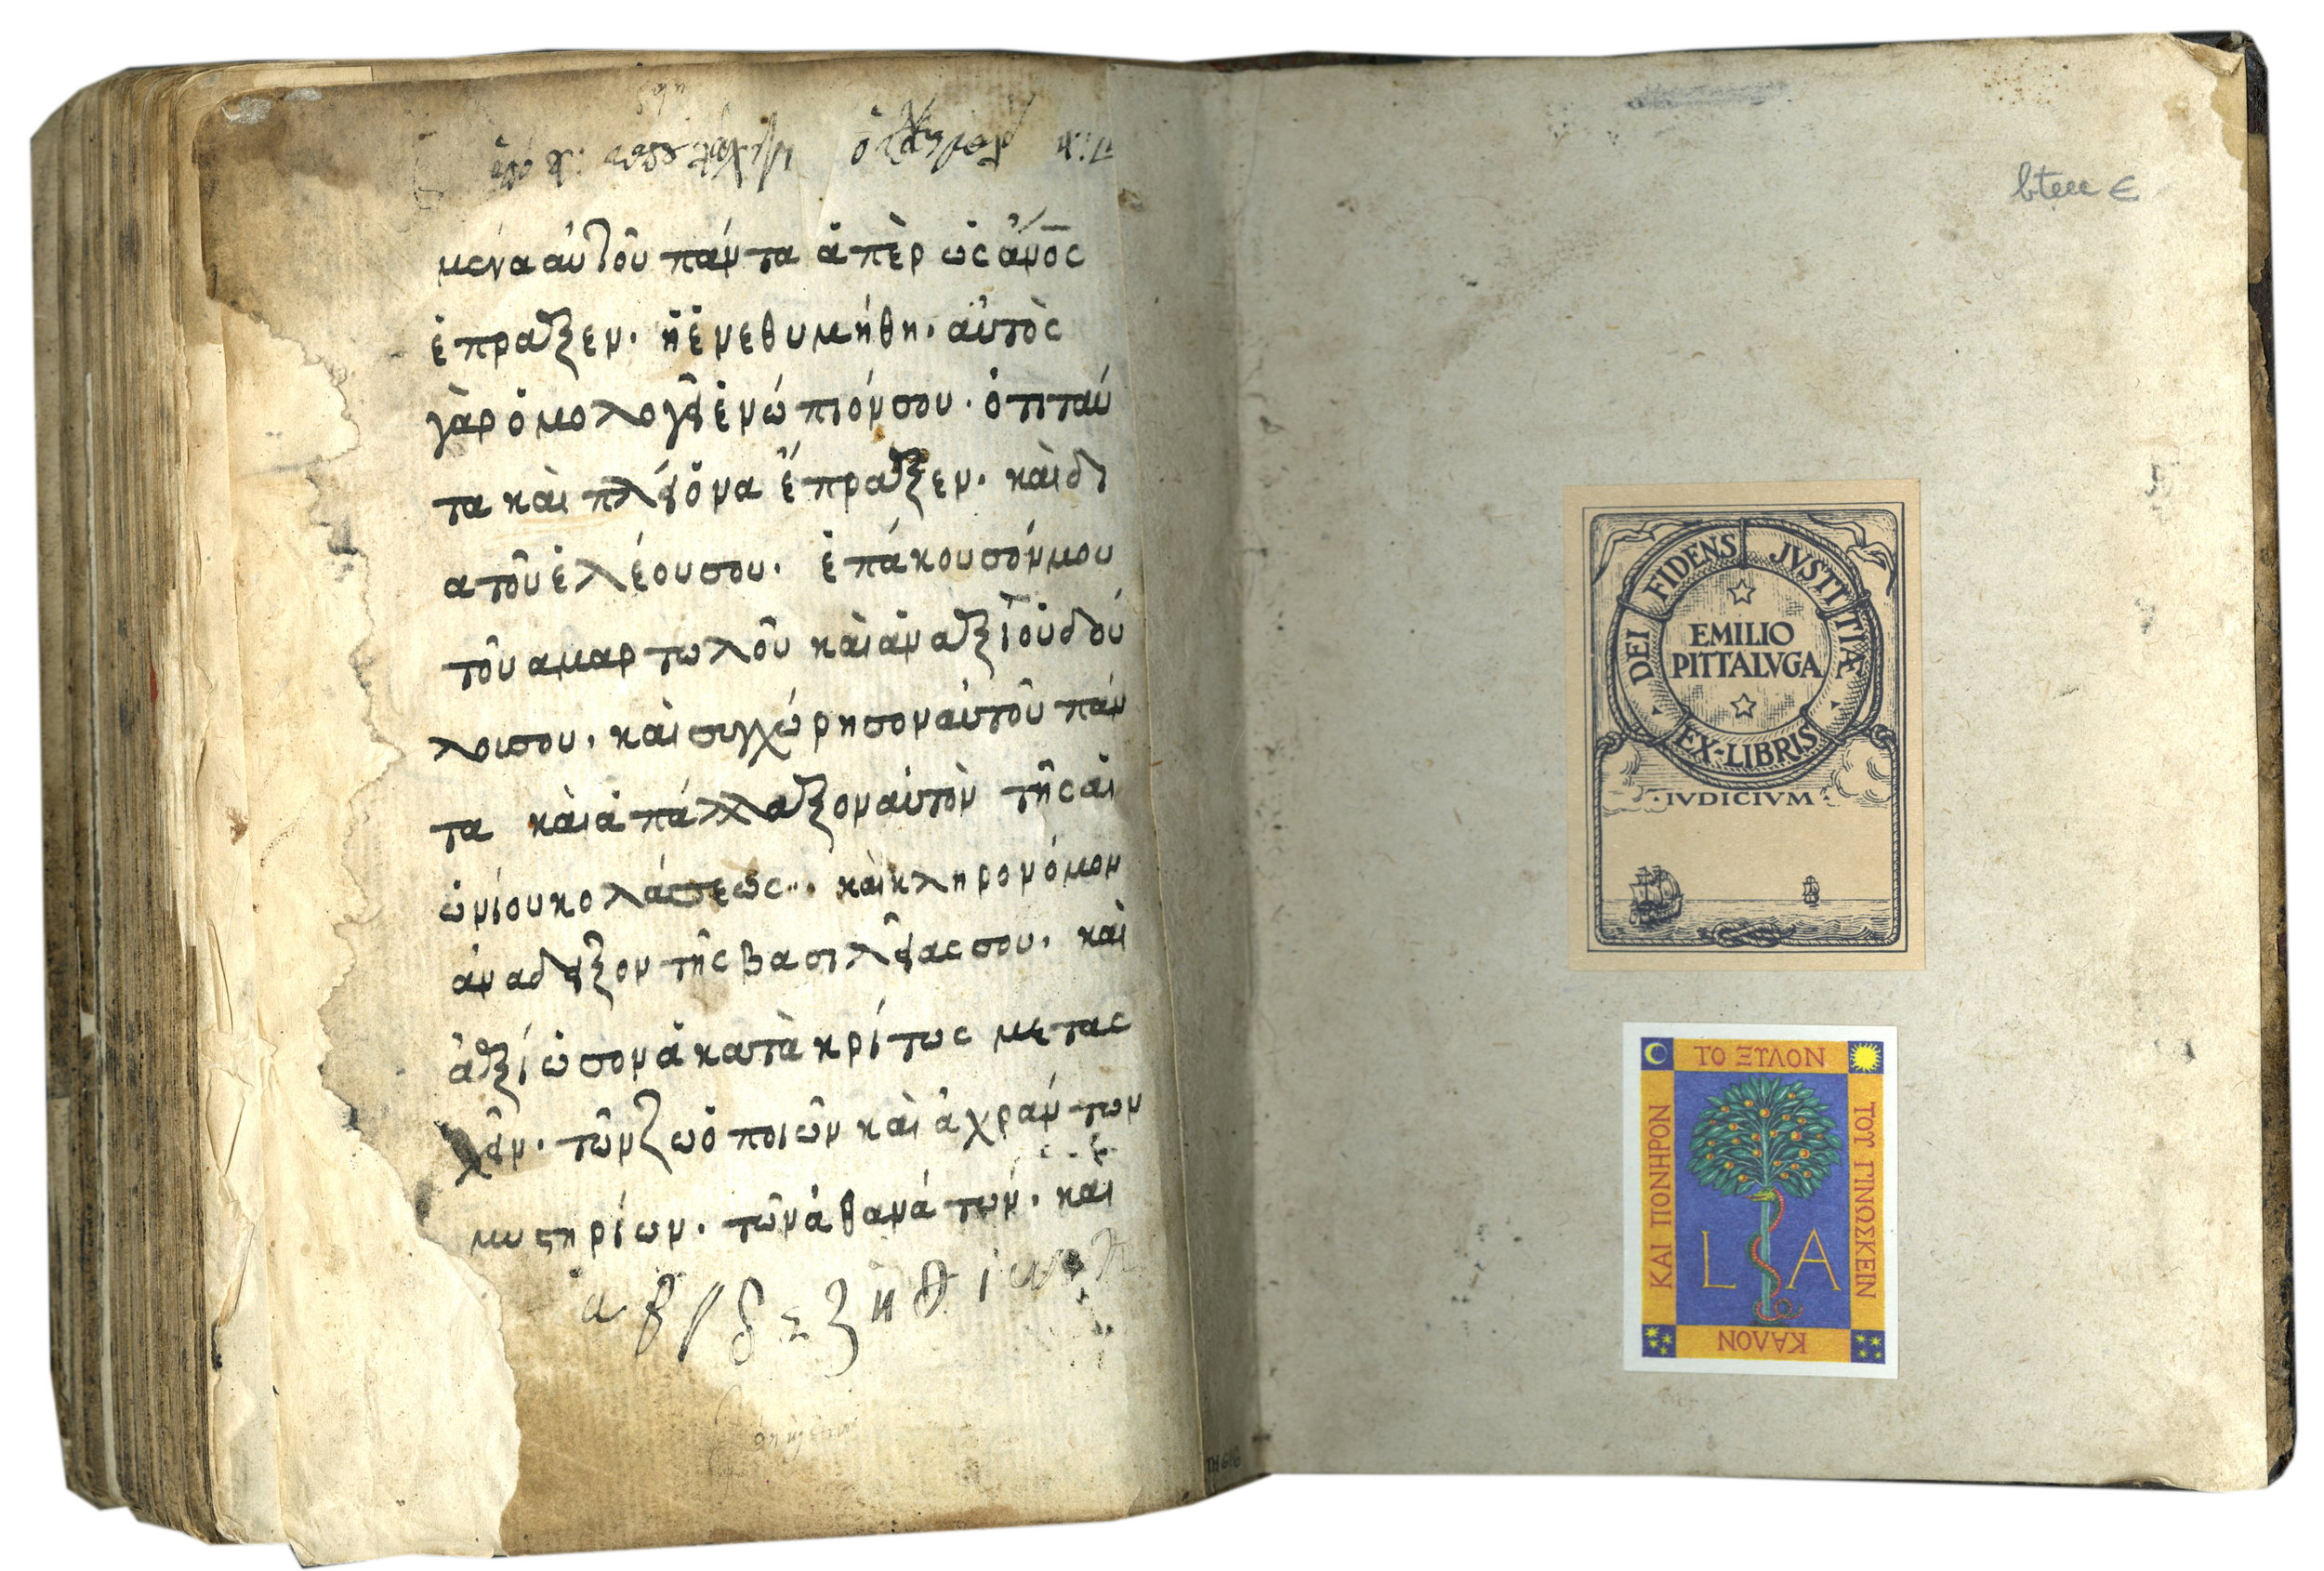 μενα αὐτοῦ πάντα ἅπὲρ ὡς ἀνο̅ς
ἐπραξεν· ἢ ἐνεθυμήθη· ἀυτὸς
γὰρ ὁμολογεῖ ἐνώπιόν σου· ὅτι ταύ
τα καὶ πλείονα ἔπραξεν· καὶ δι
α τοῦ ἐλέου σου· ἐπάκουσόν μου
τοῦ αμαρτωλοῦ καὶ ἀναξίου δού
λοι σου· καὶ συγχώρησον αὐτοῦ πάν
τα καὶ ἀπάλλαξον αὐτὸν τῆς αἰ
ωνίου κολάσεως· καὶ κληρονόμον
ἀναδειξον τῆς βασιλείας σου· καὶ
ἀξίωσον ἀκατὰκρίτως μετας
χεῖν· τῶν ζωὁποιῶν καὶ ἀχράντων
μυστηρίων· τῶν ἀθανάτων· καὶ
α β γ δ ε ζ η θ ι
btcce €
DEI FIDENS JVSTITIÆ
EMILIO
PITTALVGA
EX-LIBRIS
·IVDICIVM·
ΤΟ ΞΥΛΟΝ
ΤΟΥ ΓΙΝΩΣΚΕΙΝ
ΚΑΛΟΝ
ΚΑΙ ΠΟΝΗΡΟΝ
L A